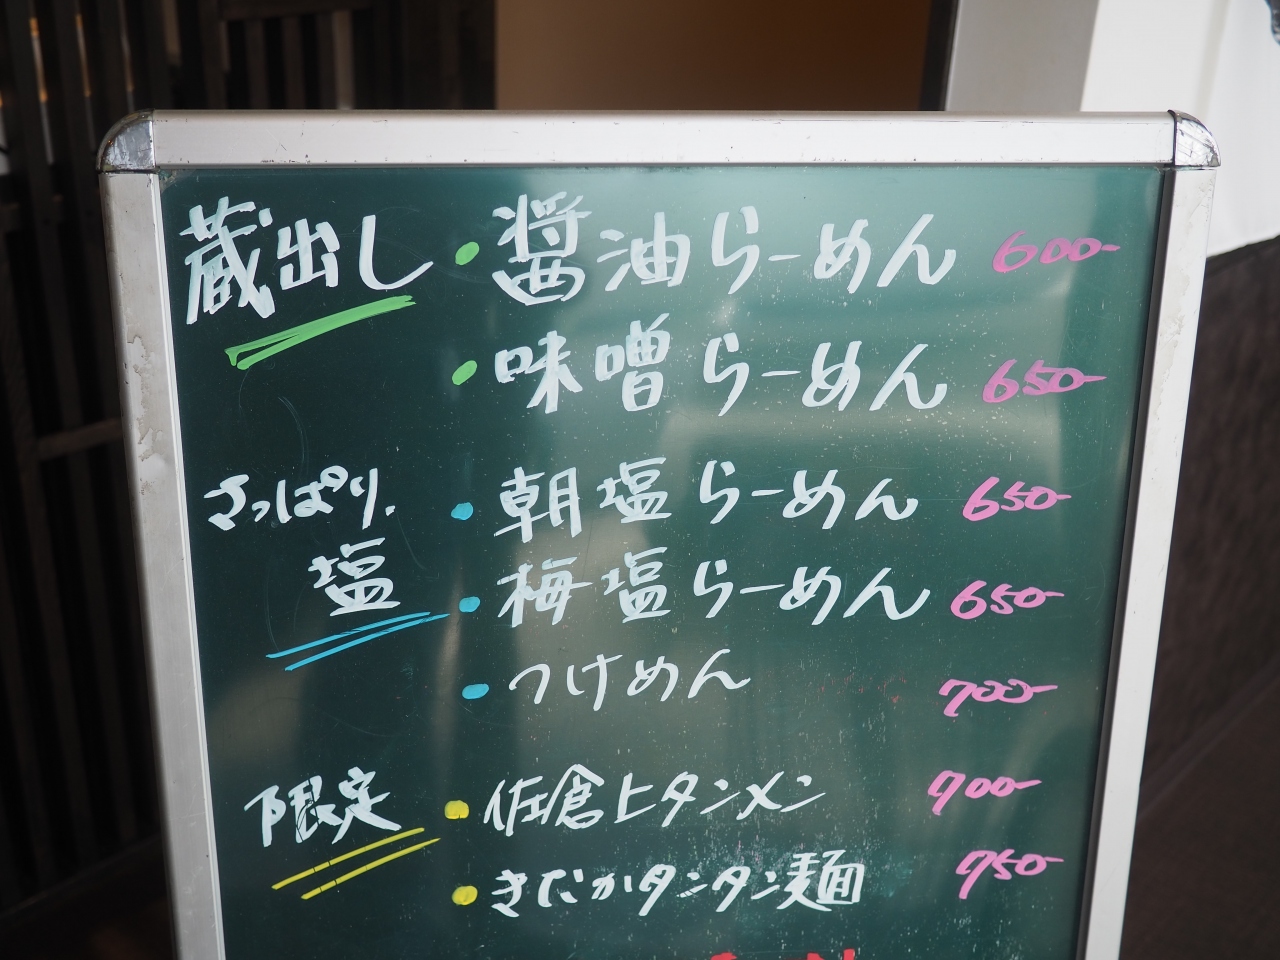 蔵出し ・醤油らーめん 600-
・味噌らーめん 650-
さっぱり. ・朝塩らーめん 650-
塩 ・梅塩らーめん 650-
・つけめん 700-
限定 ・佐倉上タンメン 700-
・きだかタンタン麺 750-